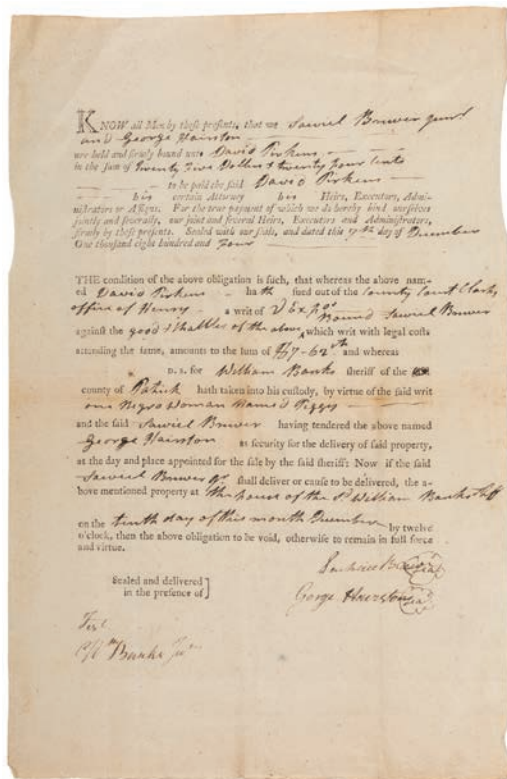 KNOW all Men by these presents, that we Sawiel Bruwer junr
and George Hairston
are held and firmly bound unto David Pirkens
in the Sum of twenty Five Dollars & twenty four cents
to be paid the said David Pirkens
his certain Attorney his Heirs, Executors, Admi-
nistrators or Assigns. For the true payment of which we do hereby bind ourselves
jointly and severally, our joint and several Heirs, Executors and Administrators,
firmly by these presents. Sealed with our seals, and dated this 7th day of December
One thousand eight hundred and four
THE condition of the above obligation is such, that whereas the above nam-
ed David Pirkens hath sued out of the County Court Clarks
office of Henry a writ of V Expos
Bound Sawiel Bruwer
against the good & Chattles of the above, which writ with legal costs
attending the same, amounts to the sum of and whereas
D. S. for William Banks sheriff of the
county of Patrick hath taken into his custody, by virtue of the said writ
one Negro Woman Named Peggy
and the said Sawiel Bruwer having tendered the above named
George Hairston as security for the delivery of said property,
at the day and place appointed for the sale by the said sheriff: Now if the said
Sawiel Bruwer jr shall deliver or cause to be delivered, the a-
bove mentioned property at the house of the sd William Banks Shff
on the tenth day of this month December by twelve
o'clock, then the above obligation to be void, otherwise to remain in full force
and virtue.
Sealed and delivered
in the presence of]
George Hairston seal
Test
Wm Banks Jur